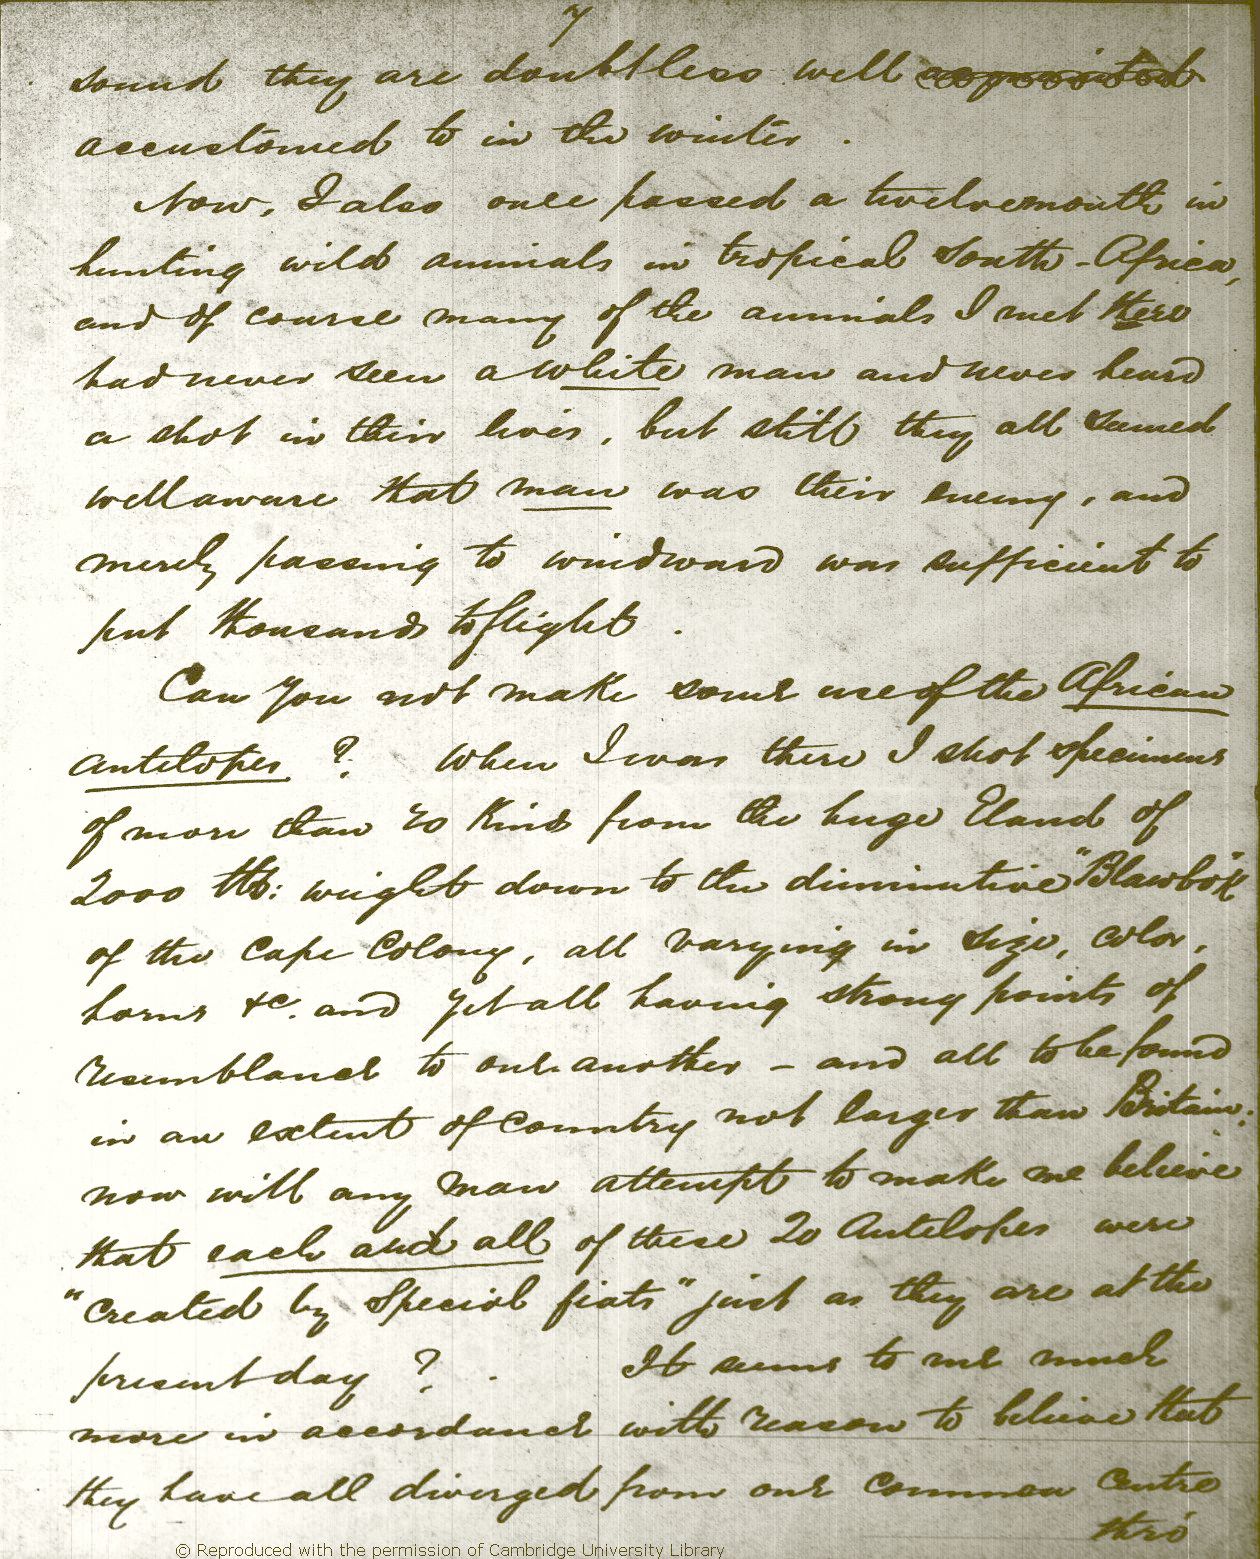 7
sound they are doubtless well
accustomed to in the winter .
Now, I also once passed a twelvemonth in
hunting wild animals in tropical South-Africa,
and of course many of the animals I met there
had never seen a white man and never heard
a shot in their lives, but still they all seemed
well aware that man was their enemy, and
merely passing to windward was sufficient to
put thousands to flight .
Can you not make some use of the African
antelopes ? When I was there I shot specimens
of more than 20 kinds from the huge Eland of
2000 lbs: weight down to the diminutive "Blawbok"
of the Cape Colony, all varying in size, color,
horns &c. and yet all having strong points of
resemblance to one another – and all to be found
in an extent of country not larger than Britain.
now will any man attempt to make me believe
that each and all of these 20 Antelopes were
"created by Special fiats" just as they are at the
present day ? . It seems to me much
more in accordance with reason to believe that
they have all diverged from one common centre
thro'
© Reproduced with the permission of Cambridge University Library